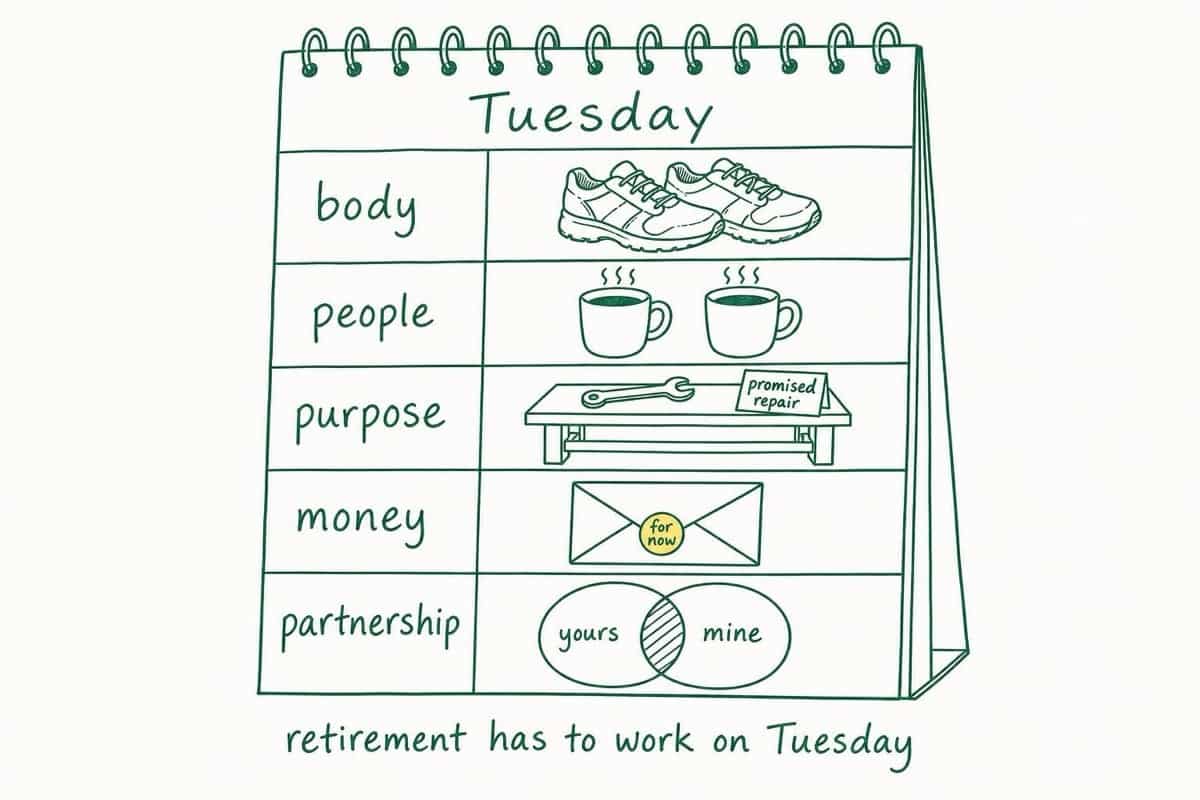 Tuesday
body
people
purpose
promised
repair
money
for
now
partnership
yours
mine
retirement has to work on Tuesday